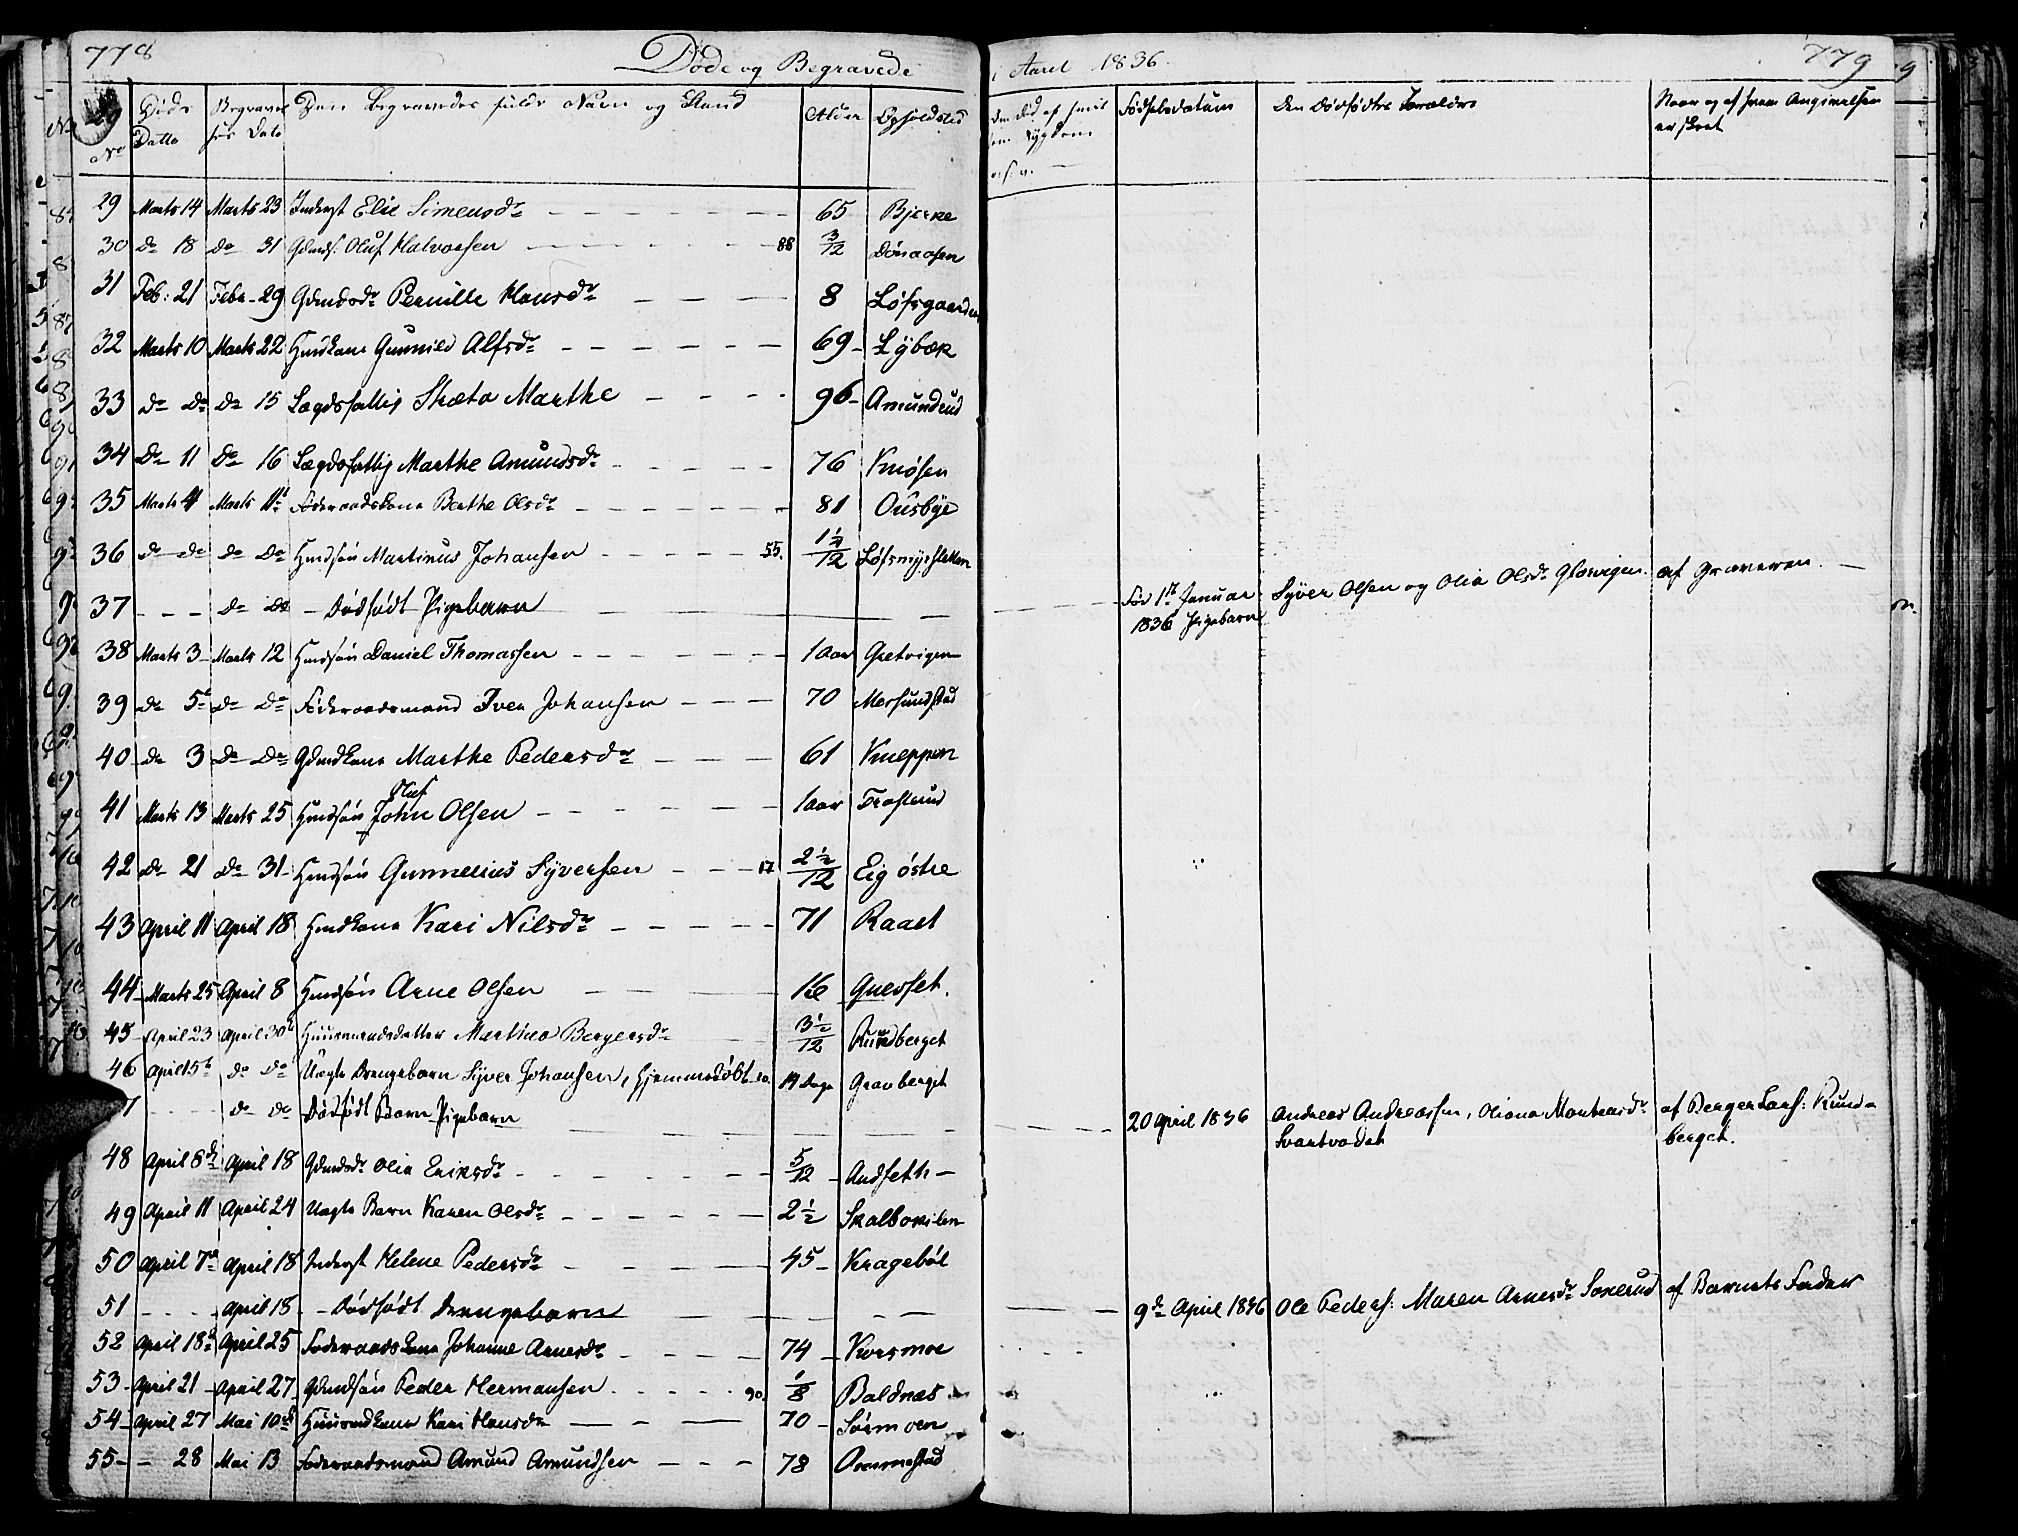 778 Døde og Begravede i Aaret 1836. 779
No Døds Datto Begravelses Dato Den begravedes fulde Navn og Stand Alder Opholdsted Fødselsdatum Den Dødfødtes Forældre Naar og af hvem Angivelsen er skeet
29 Marts 14 Marts 23 Inderst Elie Simensdr 65 Bjerke
30 do 18 do 31 Gdmds: Oluf Halvorsen 88 3/12
31 Feb: 21 Febr 29 Gdmdsdr Pernille Hansdr 8 Løfsgaarden
32 Marts 10 Marts 22 Hmdkone Gunnild Alfsdr 69 Lÿbæk
33 do do do 15 Lægdsfattig Skæta Marthe 96 Amundrud
34 do 11 do 16 Lægdsfattig Marthe Amundsdr 76 Knøsen
35 Marts 4 Marts 11t Føderaadskone Berthe Olsdr 81 Ousbye
36 do do do do Hmdsøn Martinus Johansen 55. 1½/12 Løfsmyrsletten
37 - - - do do - Dødfødt Pigebarn Før 1st Januar 1836 Pigebarn Syver Olsen og Olia Olsdr Glosvigen. af Graveren.
38 Marts 3 Marts 12 Hmdsøn Daniel Thomassen 1 Aar Grætvigen
39 do 5t do do Føderaadsmand Iver Johansen 70 Mersundstad
40 do 3 do do Gdmdkone Marthe Pedersdr 61 Kneppen
Oluf
41 Marts 13 Marts 25 Hmdsøn John Olsen 1 Aar Fraslund
42 do 21 do 31 Hmdsøn Gunnerius Syversen 17 2½/12 Eig østre
43 April 11 April 18 Hmdkone Kari Nilsdr 71 Raaet
44 Marts 25 April 8 Hmdsøn Arne Olsen 16 Gnesset.
45 April 23 April 30t Huusmandsdatter Marthea Bergersdr 3½/12 Rundberget
46 April 15t do do Uægte Drengebarn Syver Johansen, hjemmedøbt 14 Dage Gravberget
7 - - - - do do Dødfødt Barn Pigebarn 20 April 1836 Andreas Andreassen, Oliana Mortensdr Svartvadet af Berger Lars: Rundberget.
48 April 8d April 18 Gdmdsdr Olia Eriksdr 5/12 Andseth
49 April 11 April 24 Uægte Barn Karen Olsdr 2½ Skalbokilen
50 April 7d April 18 Inderst Helene Pedersdr 45 Kragebøl
51 - - - - April 18 - - Dødfødt Drengebarn 9d April 1836 Ole Peders: Maren Arnesdr Sorerud af Barnets Fader
52 April 18d April 25 Føderaadskone Johanne Arnesdr 74 Korsmoe
53 April 21 April 27 Gdmdsøn Peder Hermansen 90. 1/8 Baldnæs
54 April 27 Mai 10d Huusmdkone Kari Hansdr 70 Sørmoen
55 - 28 Mai 13 Føderaadsmand Amund Amundsen 78 Overnestad